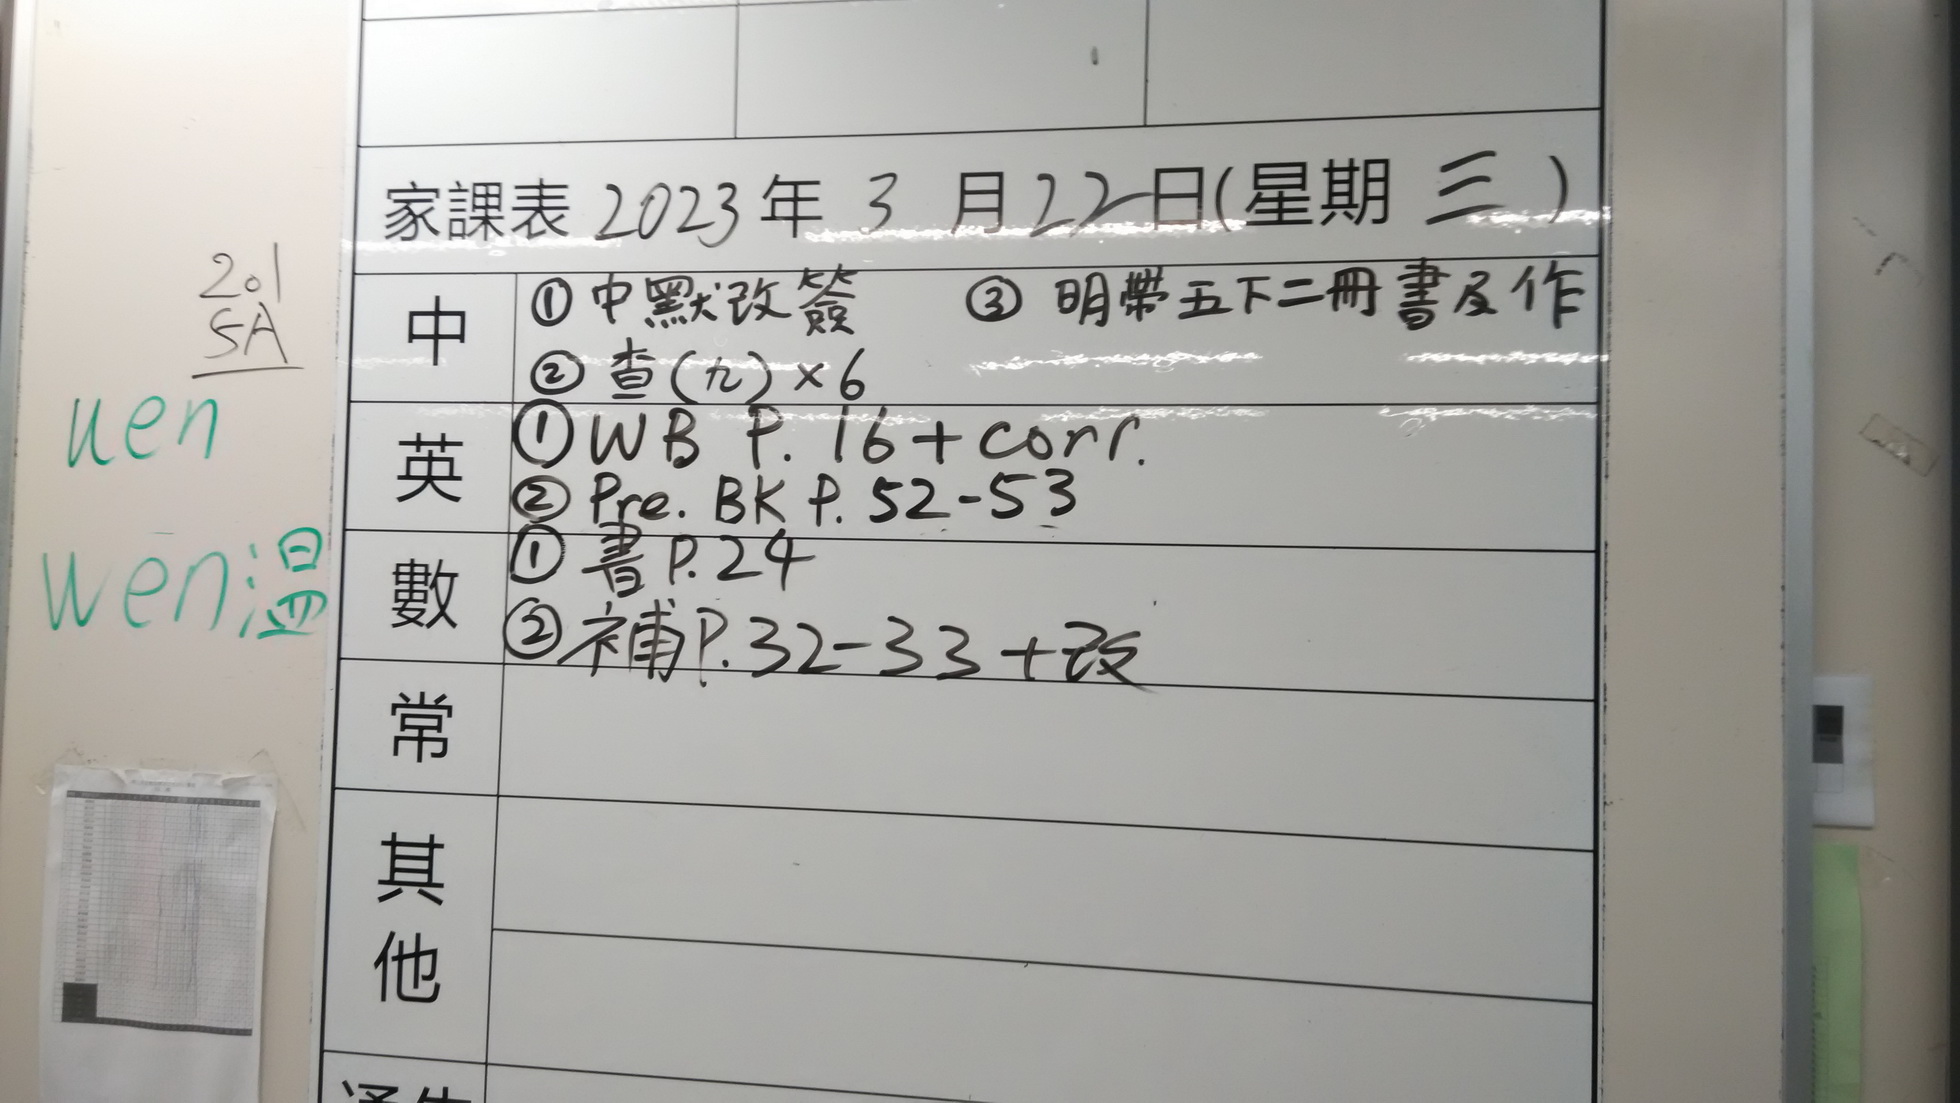 家課表 2023 年 3 月 22 日(星期 三)
201
5A
uen
wēn 溫
中
① 中默改簽 ③ 明帶五下二冊書及作
② 查(九)×6
英
① WB P. 16 + corr.
② Pre. BK P. 52-53
數
① 書 P.24
② 補 P.32-33 + 改
常
其他
通告